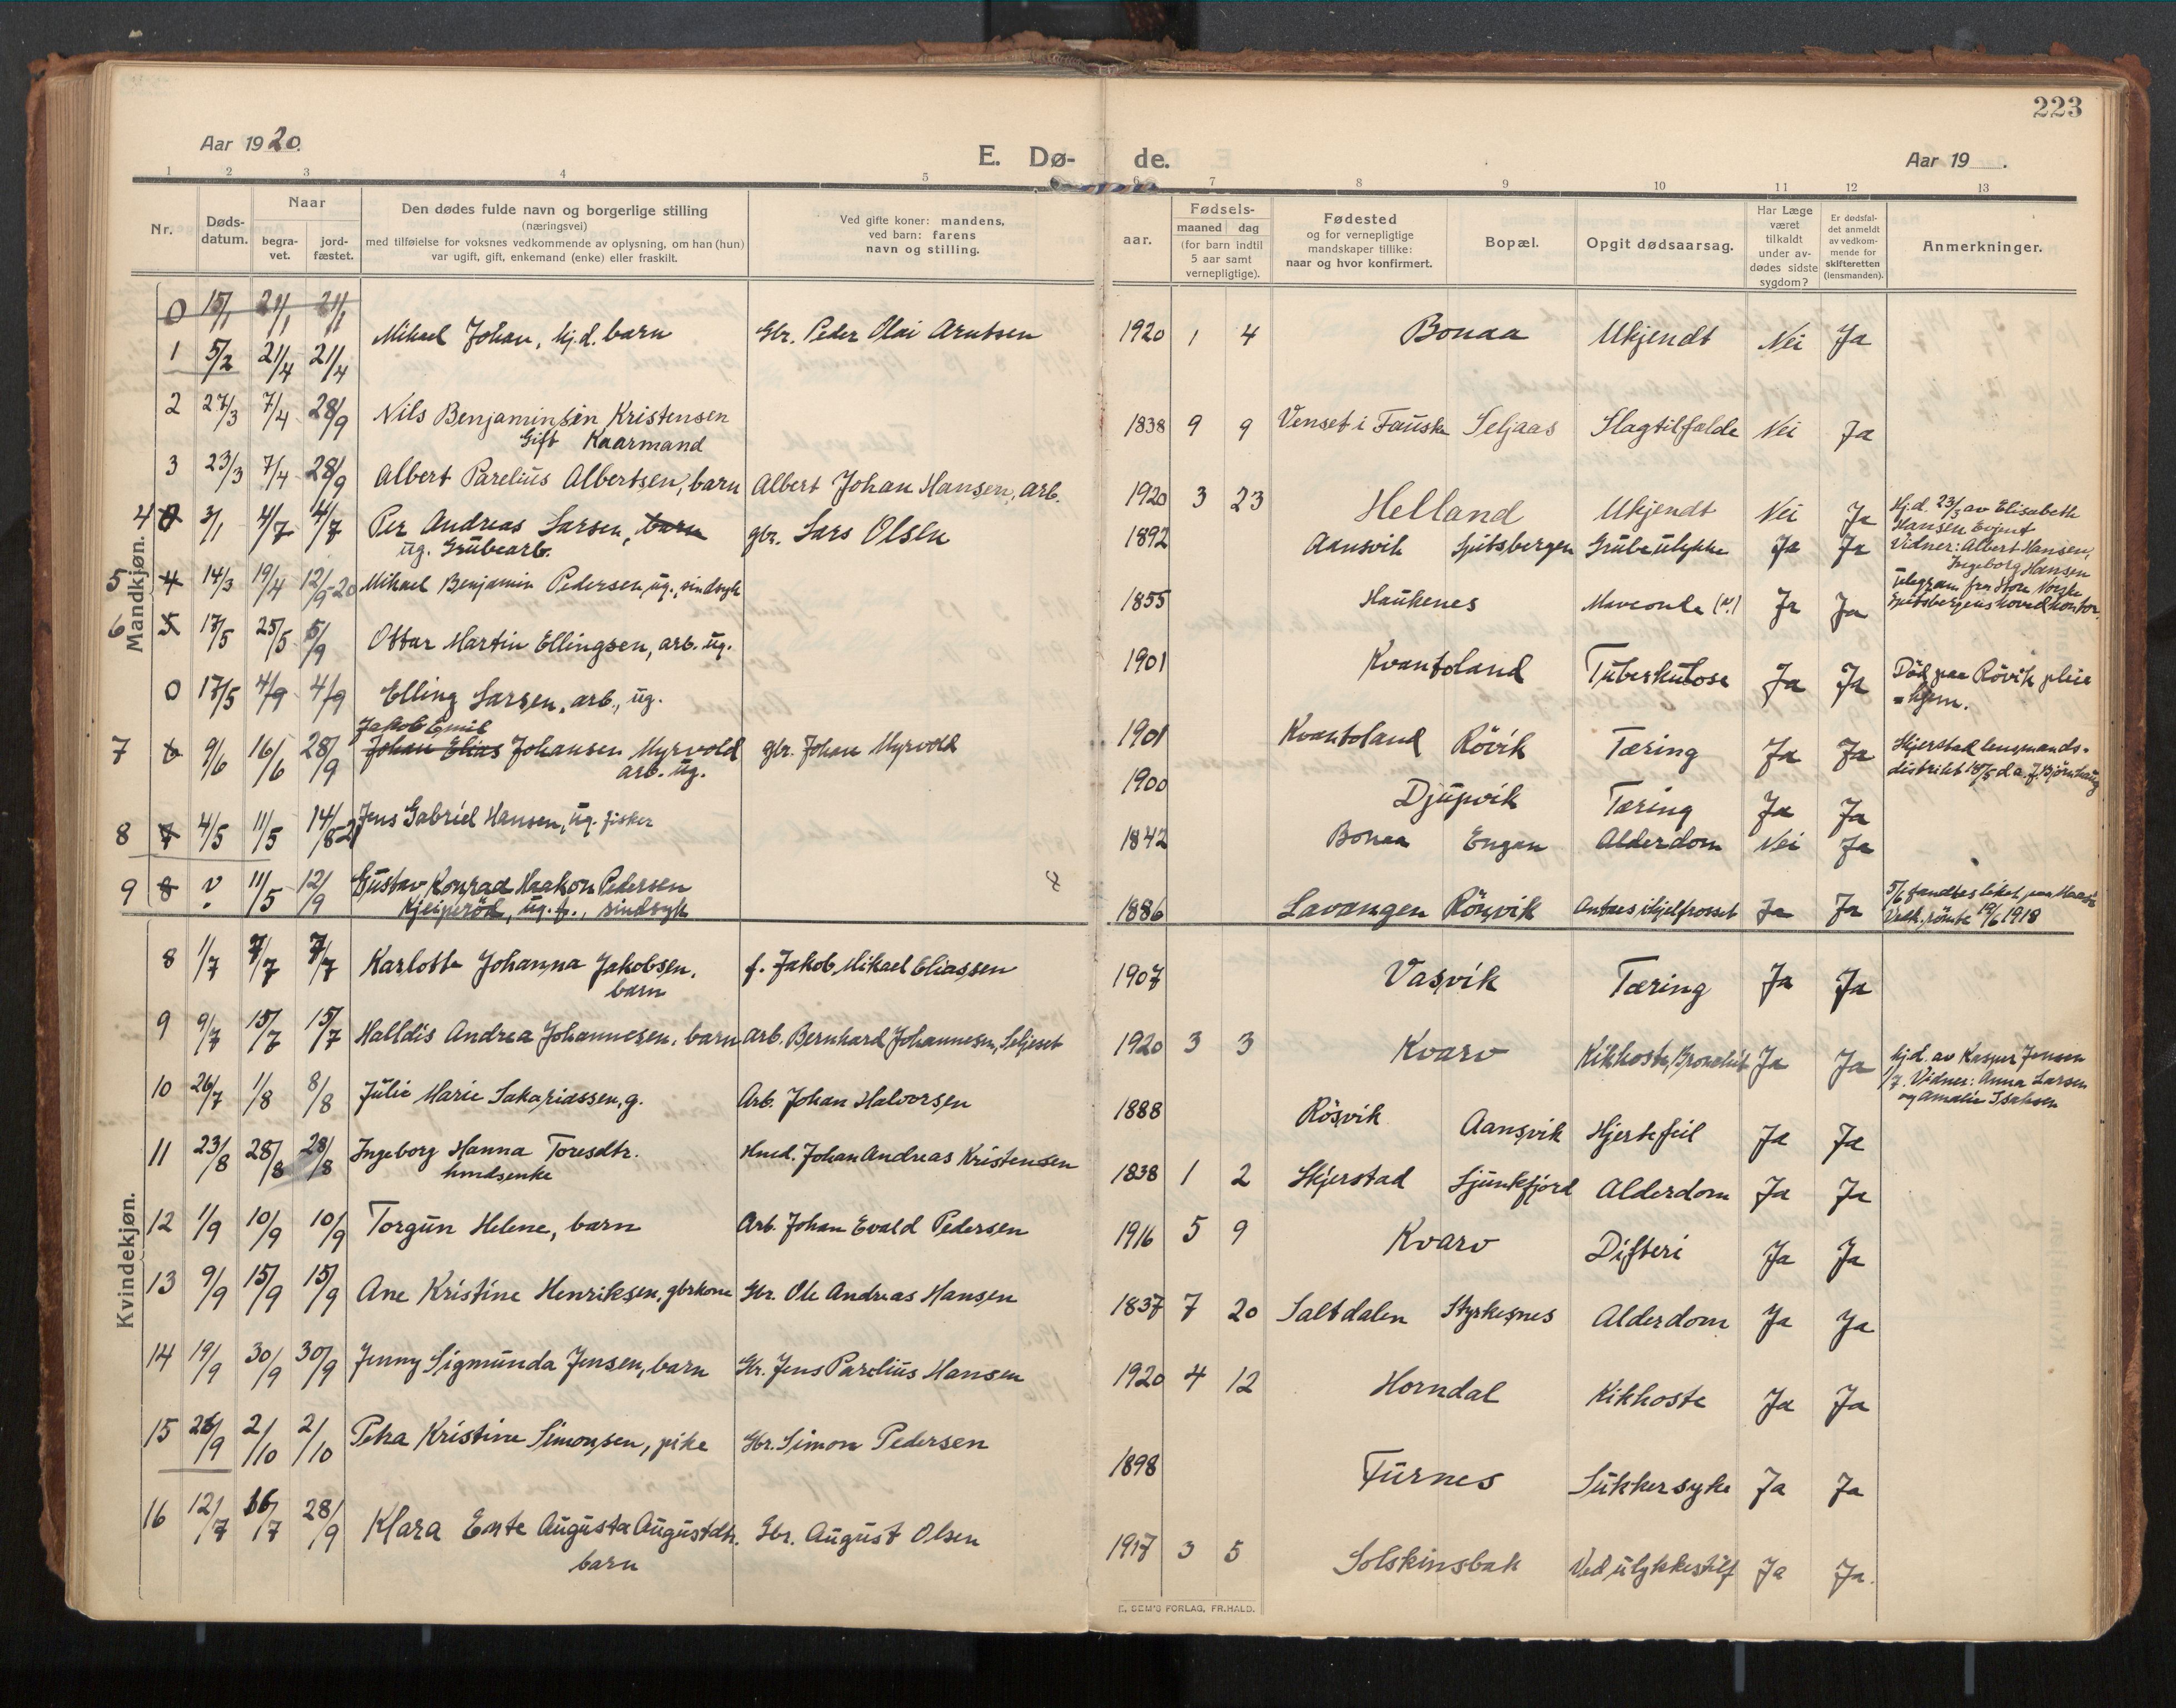 223
Aar 1920.
E. Dø- de.
Aar 19 .
1 2 3 4 5 6 7 8 9 10 11 12 13
Nr.
Døds-
datum.
Naar
begra-
vet.
jord-
fæstet.
Den dødes fulde navn og borgerlige stilling
(næringsvei)
med tilføielse for voksnes vedkommende av oplysning, om han (hun)
var ugift, gift, enkemand (enke) eller fraskilt.
Ved gifte koner: mandens,
ved barn: farens
navn og stilling.
aar.
Fødsels-
maaned dag
(for barn indtil
5 aar samt
vernepligtige).
Fødested
og for vernepligtige
mandskaper tillike:
naar og hvor konfirmert.
Bopæl.
Opgit dødsaarsag.
Har Læge
været
tilkaldt
under av-
dødes sidste
sygdom?
Er dødsfal-
det anmeldt
av vedkom-
mende for
skifteretten
(lensmanden).
Anmerkninger.
Mandkjøn.
0 15/1 21/1 21/1
1 5/2 21/4 21/4 Mikael Johan, hj.d. barn Gbr. Peder Olai Arntsen 1920 1 4 Bonaa Ukjendt Nei Ja
2 27/3 7/4 28/9 Nils Benjaminsen Kristensen 1838 9 9 Venset i Fauske Seljaas Slagtilfælde Nei Ja
Gift Kaarmand
3 23/3 7/4 28/9 Albert Parelius Albertsen, barn Albert Johan Hansen, arb. 1920 3 23 Helland Ukjendt Nei Ja Hj.d. 23/3 av Elisabeth
Hansen Evjent
Vidner: Albert Hansen,
Ingeborg Hansen
4 3/1 4/7 4/7 Per Andreas Larsen, barn gbr. Lars Olsen 1892 Aansvik Spitsbergen Grubeulykke Ja Ja Telegram fra Store Norske
Spitsbergens hovedkontor.
ug. Grubearb.
5 4 14/3 19/4 12/9-20 Mikael Benjamin Pedersen, ug., sindsyk 1855 Haukenes Ja Ja
6 5 17/5 25/5 5/9 Ottar Martin Ellingsen, arb. ug. 1901 Kvantoland Tuberkulose Ja Ja Død paa Røvik pleie
=hjem.
0 17/5 4/9 4/9 Elling Larsen, arb., ug. 1901 Kvantoland Røvik Tæring Ja Ja Skjerstad lensmands-
distrikt 18/5 d.a. J. Bjørnhaug
Jakob Emil
7 6 9/6 16/6 28/9 Johan Elias Johansen Myrvold gbr. Johan Myrvold 1900 Djupvik Tæring Ja Ja
arb. ug.
8 7 4/5 11/5 14/8-21 Jens Gabriel Hansen, ug. fisker 1842 Bonaa Engan Alderdom Nei Ja
9 8 ? 11/5 12/9 Gustav Konrad Haakon Pedersen 1886 Lavangen Rønvik Antaes ihjelfrosset Ja Ja 5/6 fandtes liket paa
rømte 19/6 1918
Kjeiperød, ug. f., sindsyk
Kvindekjøn.
8 1/7 7/7 7/7 Karlotte Johanna Jakobsen, f. Jakob Mikael Eliassen 1907 Vasvik Tæring Ja Ja
barn
9 9/7 15/7 15/7 Halldis Andrea Johannesen, barn Arb. Bernhard Johannesen, Seljeset 1920 3 3 Kvarv Kikhoste, Bronchit Ja Ja hj.d. av Kasper Jensen
1/7. Vidner: Anna Larsen
og Amalie Isaksen
10 26/7 1/8 8/8 Julie Marie Sakariassen, g. Arb. Johan Halvorsen 1888 Røsvik Aansvik Hjertefeil Ja Ja
11 23/8 28/8 28/8 Ingeborg Hanna Toresdtr. Hmd. Johan Andreas Kristensen 1838 1 2 Skjerstad Sjunkfjord Alderdom Ja Ja
hmdsenke
12 1/9 10/9 10/9 Torgun Helene, barn Arb. Johan Evald Pedersen 1916 5 9 Kvarv Difteri Ja Ja
13 9/9 15/9 15/9 Ane Kristine Henriksen, gbrkone Gbr. Ole Andreas Hansen 1837 7 20 Saltdalen Styrkesnes Alderdom Ja Ja
14 19/9 30/9 30/9 Jenny Sigmunda Jensen, barn Gbr. Jens Parelius Hansen 1920 4 12 Horndal Kikhoste Ja Ja
15 26/9 2/10 2/10 Petra Kristine Simonsen, pike Gbr. Simon Pedersen 1898 Furnes Sukkersyke Ja Ja
16 12/7 16/7 28/9 Klara Augusta Augustdtr. Gbr. August Olsen 1917 3 5 Solskinsbak Ved ulykkestilf Ja Ja.
barn
E. SEM'S FORLAG, FR.HALD.